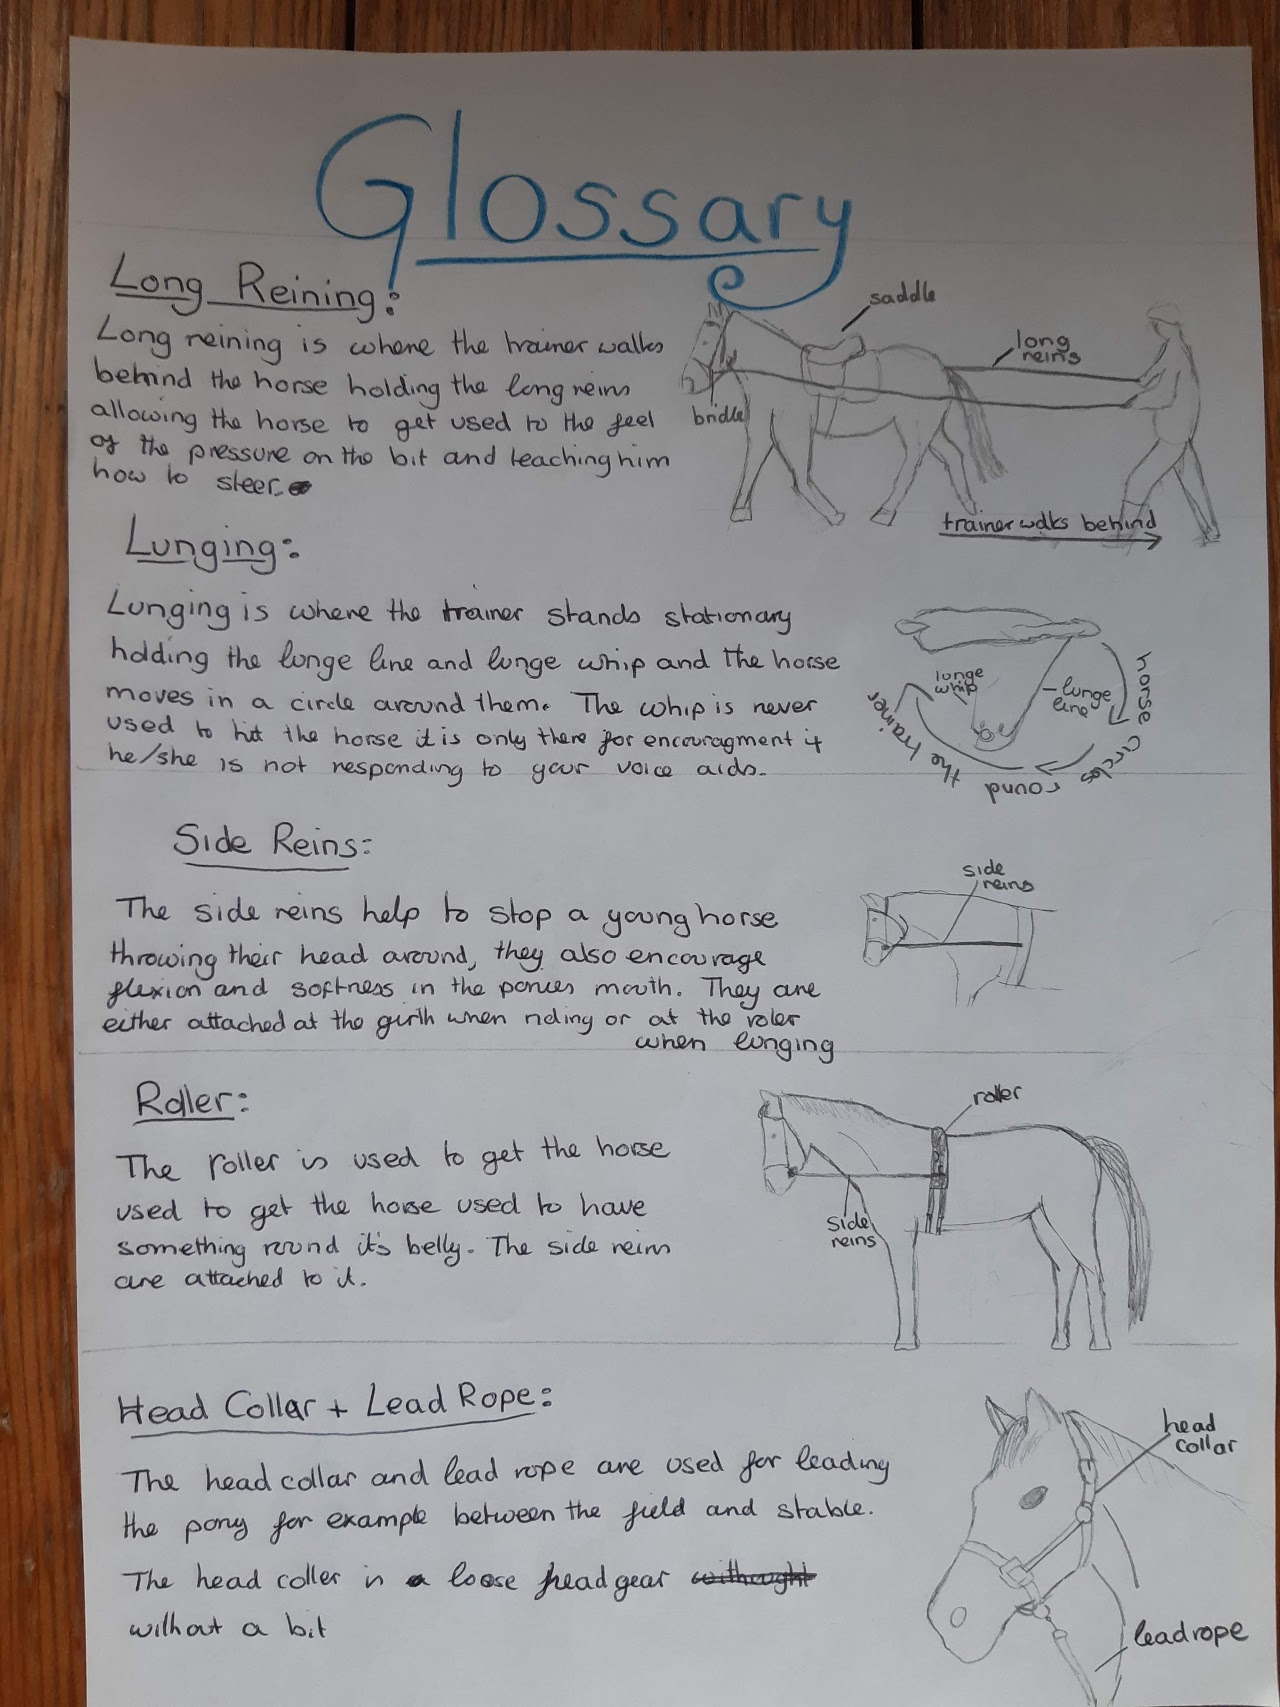 Glossary
Long Reining:
Long reining is where the trainer walks
behind the horse holding the long reins
allowing the horse to get used to the feel
of the pressure on the bit and teaching him
how to steer.
saddle
long
reins
bridle
trainer walks behind
Lunging:
Lunging is where the trainer stands stationary
holding the lunge line and lunge whip and the horse
moves in a circle around them. The whip is never
used to hit the horse it is only there for encouragment if
he/she is not responding to your voice aids.
lunge
whip
lunge
line
horse circles round the trainer
Side Reins:
The side reins help to stop a young horse
throwing their head around, they also encourage
flexion and softness in the ponies mouth. They are
either attached at the girth when riding or at the roler
when lunging
side
reins
Roller:
The roller is used to get the horse
used to get the horse used to have
something round it's belly. The side reins
are attached to it.
roller
side
reins
Head Collar + Lead Rope:
The head collar and lead rope are used for leading
the pony for example between the field and stable.
The head coller is a loose head gear withought
without a bit
head
collar
leadrope